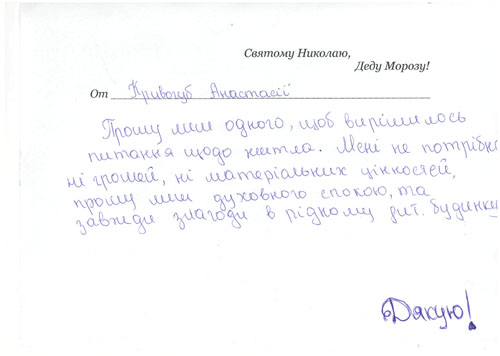 Святому Николаю,
Деду Морозу!
От Кривогуб Анастасії
Прошу лиш одного, щоб вирішилось
питання щодо житла. Мені не потрібно
ні грошей, ні матеріальних цінностей,
прошу лиш духовного спокою, та
завжди злагоди в рідному дит. будинку
Дякую!